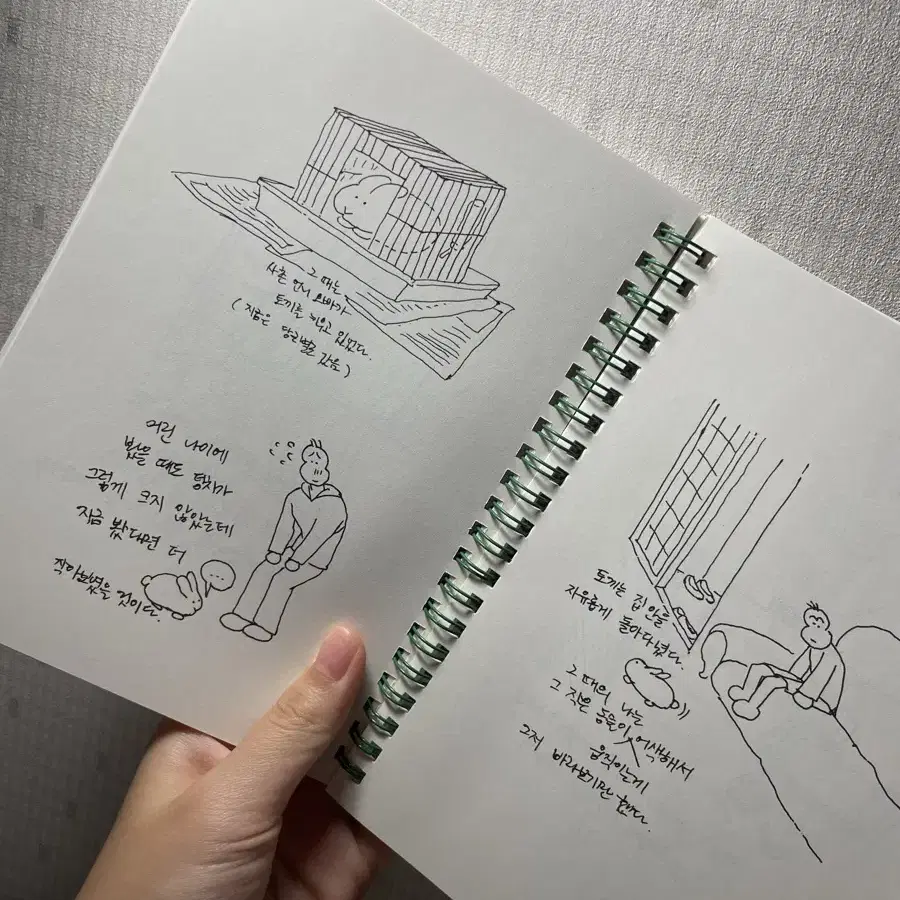 그 때는
사촌 언니 오빠가
토끼를 키우고 있었다.
(지금은 당근별로 갔음)
어린 나이에
봤을 때도 덩치가
그렇게 크지 않았는데
지금 봤다면 더
작아보였을 것이다.
...
토끼는 집 안을
자유롭게 돌아다녔다.
그 때의 나는
그 작은 동물이 어색해서
움직이는게
그저 바라보기만 했다.